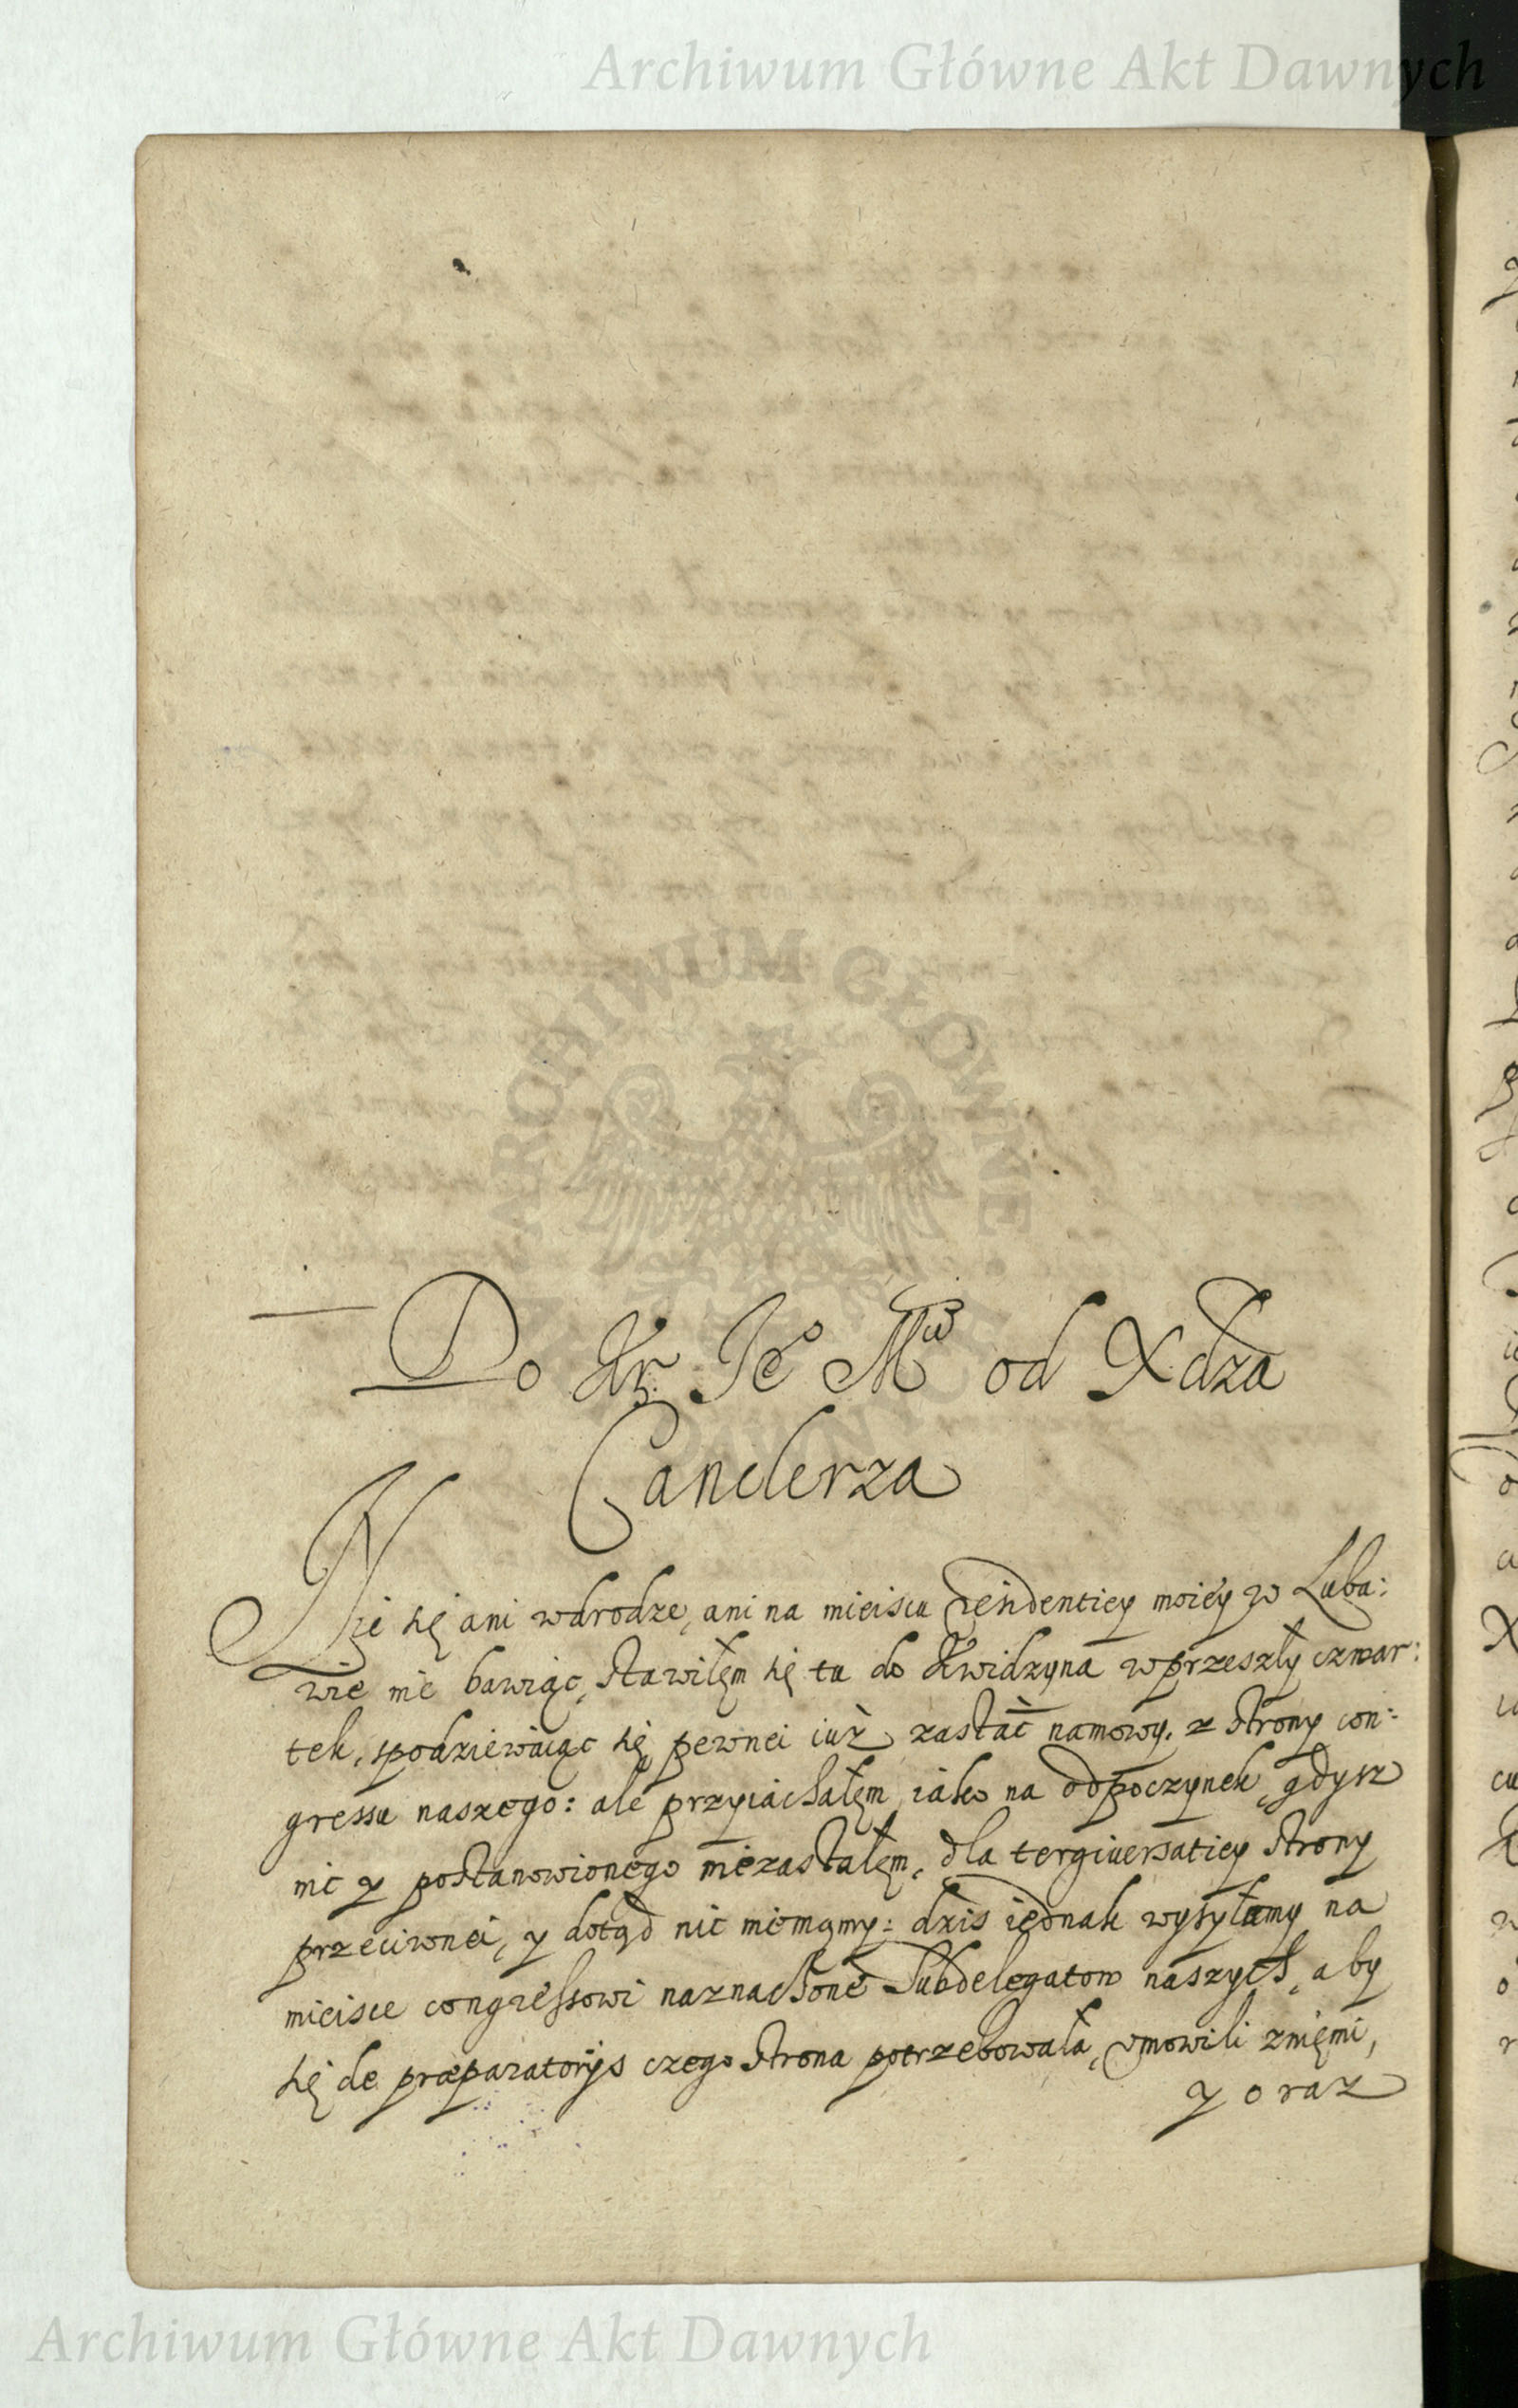 Archiwum Główne Akt Dawnych
ARCHIWUM GŁÓWNE
AKT DAWNYCH
Do Kr. Je⁰ Mći od Xdza
Canclerza
Nie się ani wdrodze, ani na mieiscu residentiey moiey w Luba:
wie nie bawiąc, stawiłęm się tu do Kwidzyna wprzeszły czwar:
tek, spodziewaiąc się pewnei iuż zastać namowy. z strony con:
gressu naszego: ale przyiachałęm iako na odpoczynek, gdysz
nic y postanowionego niezastałęm, dla tergiuersatiey strony
przeciwnei, y dotąd nic niemąmy: dzis iednak wysyłamy na
mieisce congressowi naznaczone Subdelegatow naszych, aby
się de præparatorijs czego strona potrzebowała, vmowili zniemi,
y oraz
Archiwum Główne Akt Dawnych